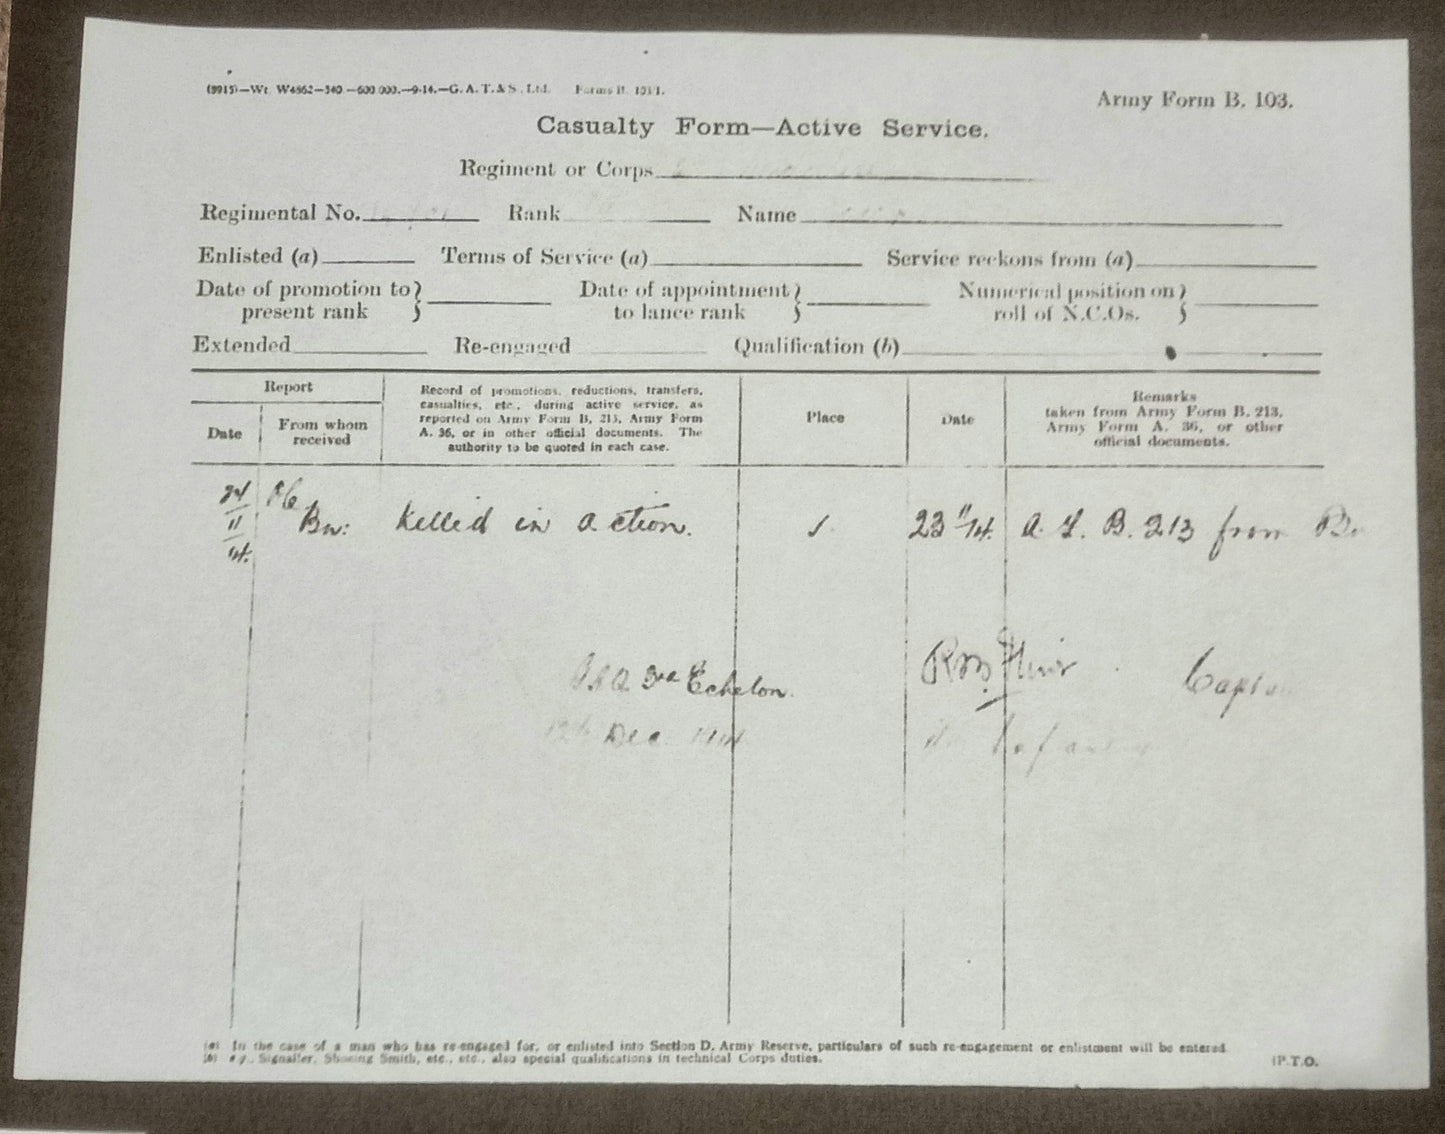 (8915)—Wt. W4862—540.—600,000.—9-14.—G. A. T. & S., Ltd. Forms B. 103/1.
Army Form B. 103.
Casualty Form—Active Service.
Regiment or Corps
Regimental No. Rank Name
Enlisted (a) Terms of Service (a) Service reckons from (a)
Date of promotion to present rank } Date of appointment to lance rank } Numerical position on roll of N.C.Os. }
Extended Re-engaged Qualification (b)
Report
Date
From whom received
Record of promotions, reductions, transfers,
casualties, etc., during active service, as
reported on Army Form B. 213, Army Form
A. 36, or in other official documents. The
authority to be quoted in each case.
Place
Date
Remarks
taken from Army Form B. 213,
Army Form A. 36, or other
official documents.
24/11/14. OC Bn: Killed in action. 23/11/14. A. F. B. 213 from
3rd Echelon.
Dec
(a) In the case of a man who has re-engaged for, or enlisted into Section D. Army Reserve, particulars of such re-engagement or enlistment will be entered
(b) e.g., Signaller, Shoeing Smith, etc., etc., also special qualifications in technical Corps duties.
[P.T.O.